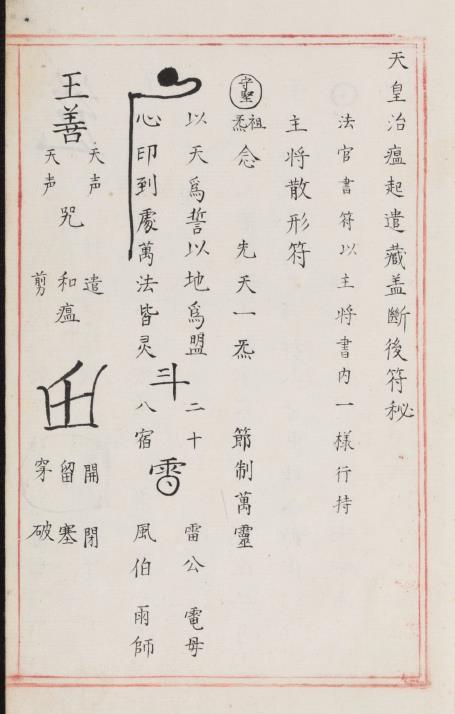 天皇治瘟起遣藏盖斷後符秘
法官書符以主將書內一樣行持
主將散形符
守聖
祖炁念 先天一炁 節制萬靈
以天爲誓以地爲盟
心印到處萬法皆灵
斗
二十
八宿
雷公 電母
風伯 雨師
王善
天声
天声
咒
遣
和瘟
剪
開 閉
留 塞
穿 破